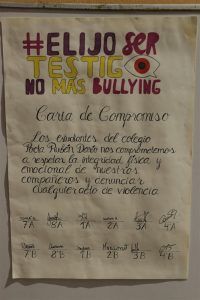 #ELIJO SER
TESTIGO
NO MAS BULLYING
Carta de Compromiso
Los estudiantes del colegio
Poeta Rubén Darío nos comprometemos
a respetar la integridad física y
emocional de nuestros
compañeros y denunciar
cualquier acto de violencia.
7A 8A 1A 2A 3A 4A
7B 8B 1B 2B 3B 4B